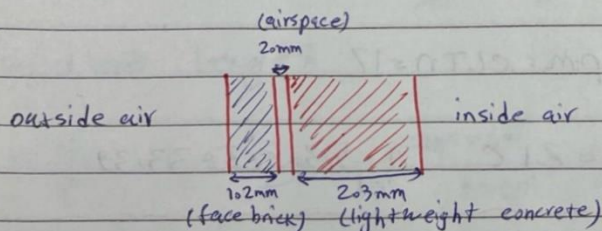 (airspace)
20mm
outside air
inside air
102mm
203mm
(face brick) (lightweight concrete)